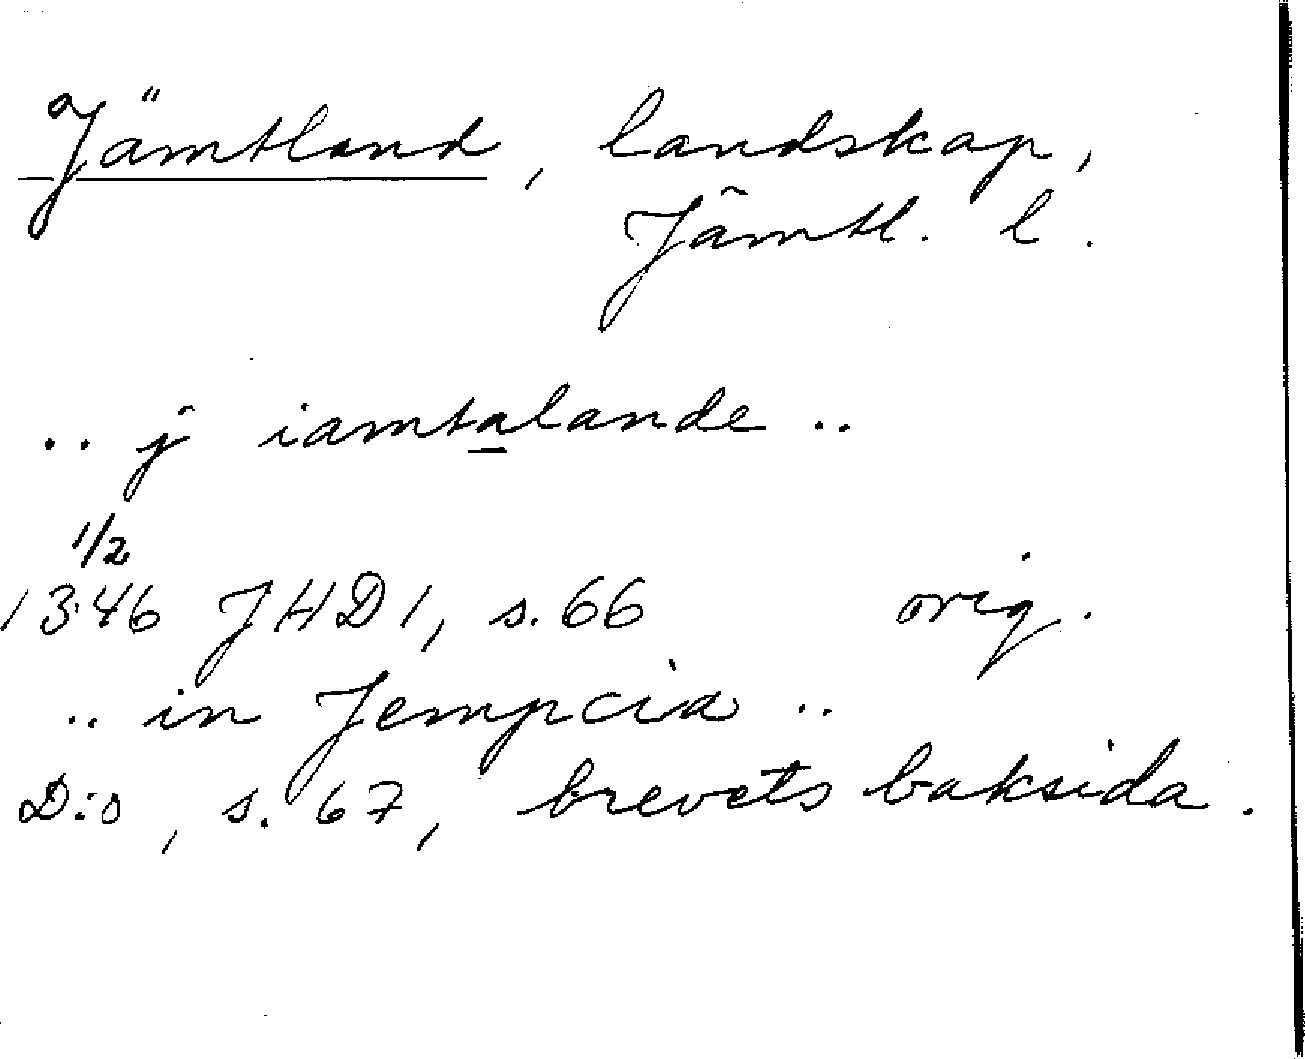 Jämtland, landskap,
Jämtl. l.
.. j iamtalande ..
1/2
1346 JHD 1, s. 66 orig.
.. in Jempcia ..
D:o, s. 67, brevets baksida.